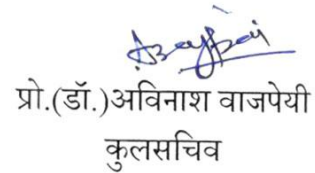 प्रो.(डॉ.)अविनाश वाजपेयी
कुलसचिव